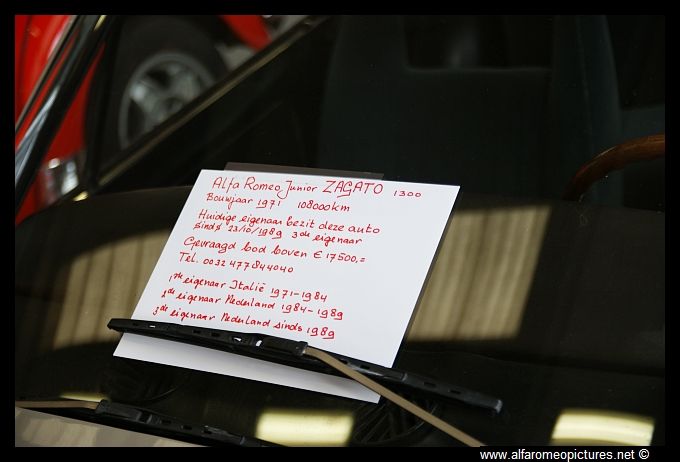 Alfa Romeo Junior ZAGATO 1300
Bouwjaar 1971 108000km
Huidige eigenaar bezit deze auto
sinds 23/10/1989 3de eigenaar
Gevraagd bod boven € 17500,=
Tel. 0032 477844040
1ste eigenaar Italië 1971-1984
2de eigenaar Nederland 1984-1989
3de eigenaar Nederland sinds 1989
www.alfaromeopictures.net ©